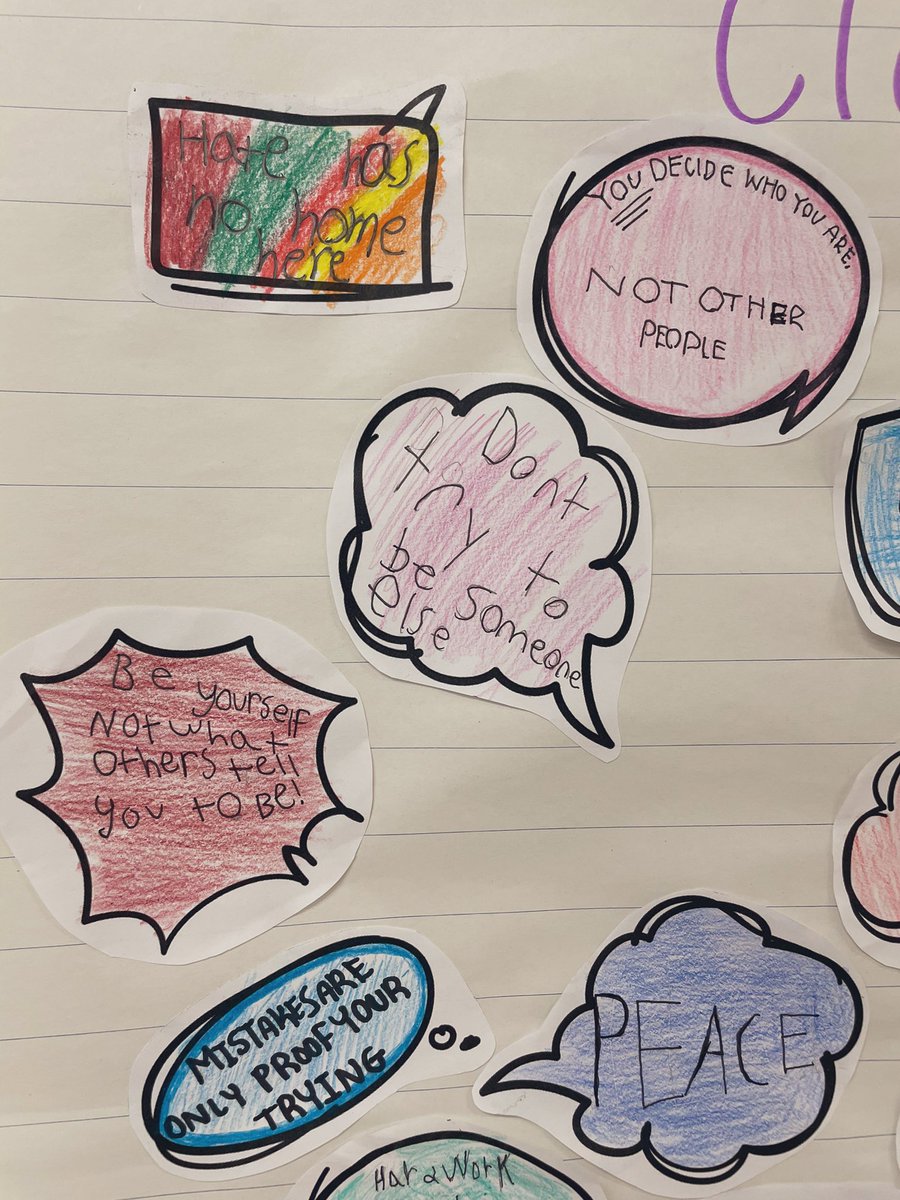 Hate has
no home
here
YOU DECIDE WHO YOU ARE,
NOT OTHER
PEOPLE
Dont
try to
be someone
else
Be yourself
Not what
others tell
you to Be!
MISTAKES ARE
ONLY PROOF YOUR
TRYING
PEACE
Hard Work